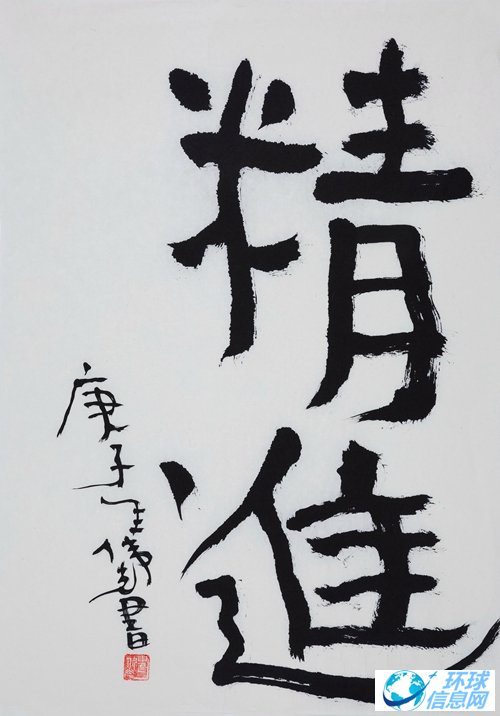 精進
庚子年
書
环球
信息网